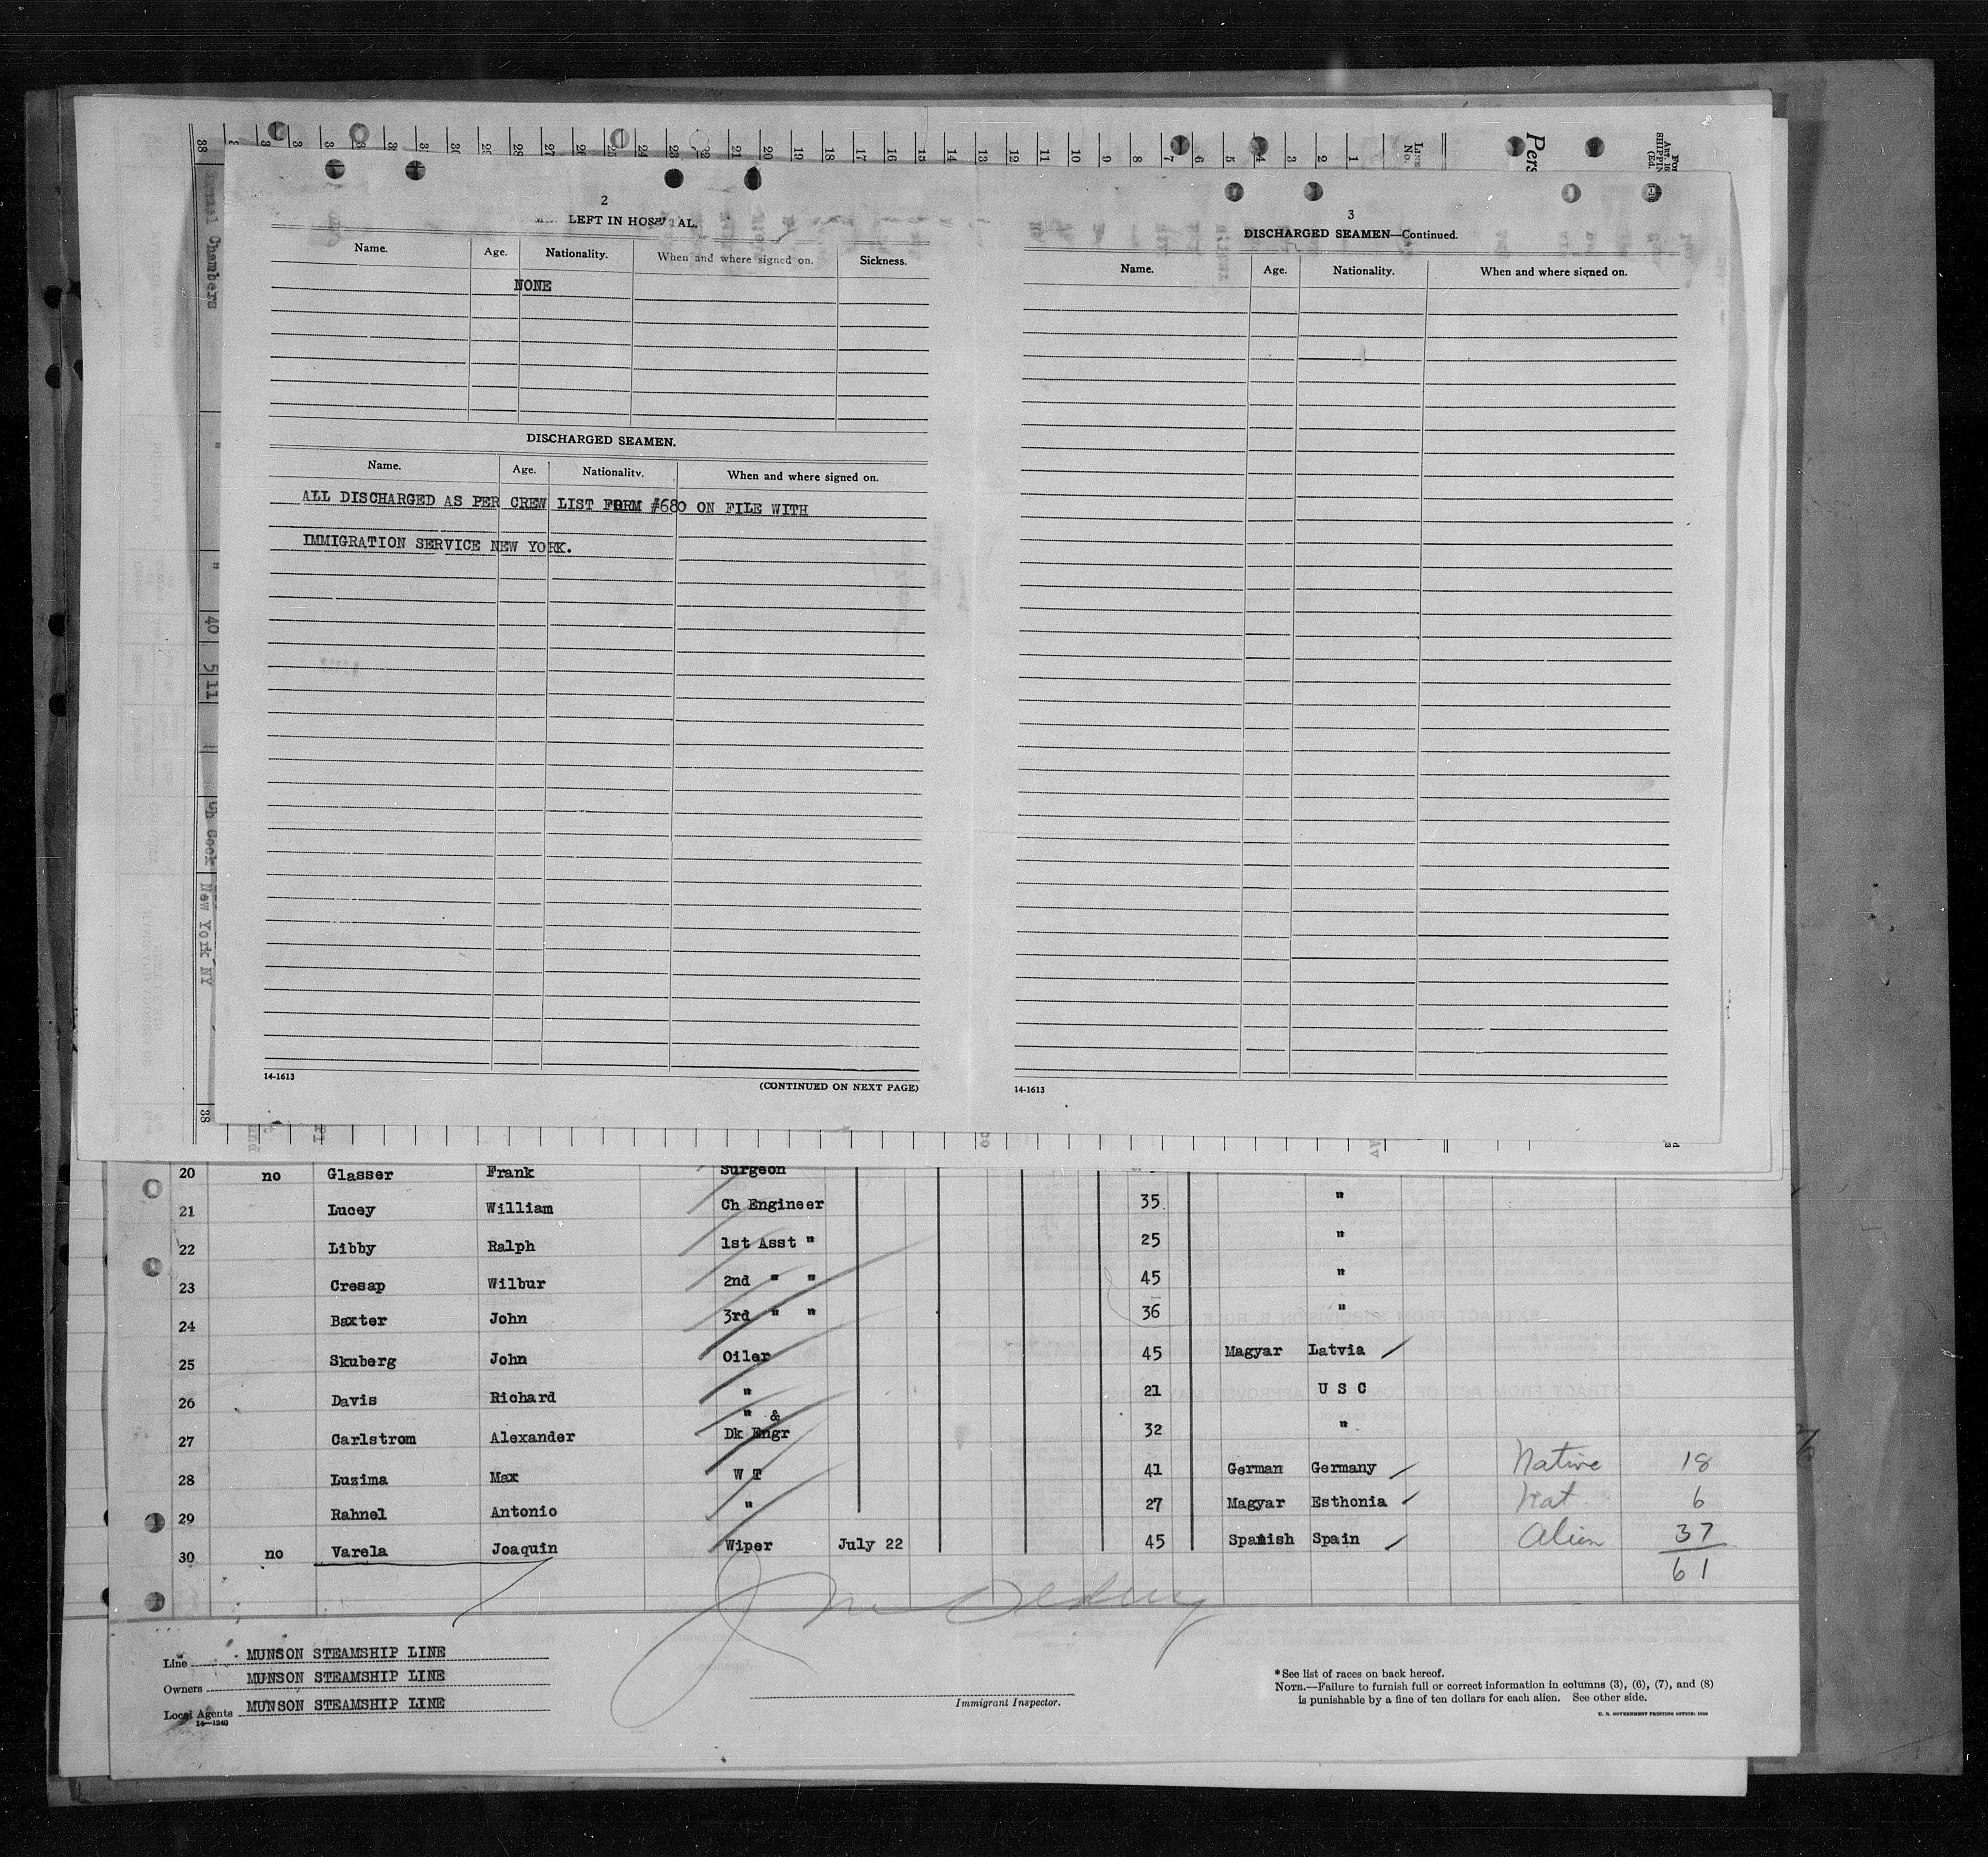 38 29 28 27 24 23 21 20 19 18 17 16 15 14 13 12 11 10 9 8 7 6 5 4 3 2 1 LINE No.
Pers
Chambers
"
"
40
5 11
Ch Cook
New York NY
38
2
LEFT IN HOSPITAL.
Name. Age. Nationality. When and where signed on. Sickness.
NONE
DISCHARGED SEAMEN.
Name. Age. Nationality. When and where signed on.
ALL DISCHARGED AS PER CREW LIST FORM #680 ON FILE WITH
IMMIGRATION SERVICE NEW YORK.
14-1613
(CONTINUED ON NEXT PAGE)
3
DISCHARGED SEAMEN—Continued.
Name. Age. Nationality. When and where signed on.
14-1613
20 no Glasser Frank Surgeon
21 Lucey William Ch Engineer 35 "
22 Libby Ralph 1st Asst " 25 "
23 Cresap Wilbur 2nd " " 45 "
24 Baxter John 3rd " " 36 "
25 Skuberg John Oiler 45 Magyar Latvia
26 Davis Richard " 21 U S C
27 Carlstrom Alexander " & Dk Engr 32 "
28 Luzima Max W T 41 German Germany Native 18
29 Rahnel Antonio " 27 Magyar Esthonia Nat. 6
30 no Varela Joaquin Wiper July 22 45 Spanish Spain Alien 37
61
Line MUNSON STEAMSHIP LINE
Owners MUNSON STEAMSHIP LINE
Local Agents MUNSON STEAMSHIP LINE
14—1240
Immigrant Inspector.
*See list of races on back hereof.
NOTE.—Failure to furnish full or correct information in columns (3), (6), (7), and (8)
is punishable by a fine of ten dollars for each alien. See other side.
U. S. GOVERNMENT PRINTING OFFICE: